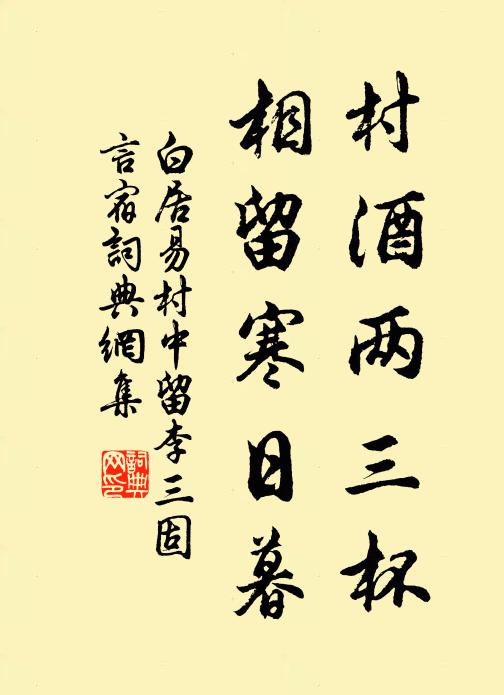 村酒两三杯
相留寒日暮
白居易村中留李三固
言宿詞典網集
詞典
网印